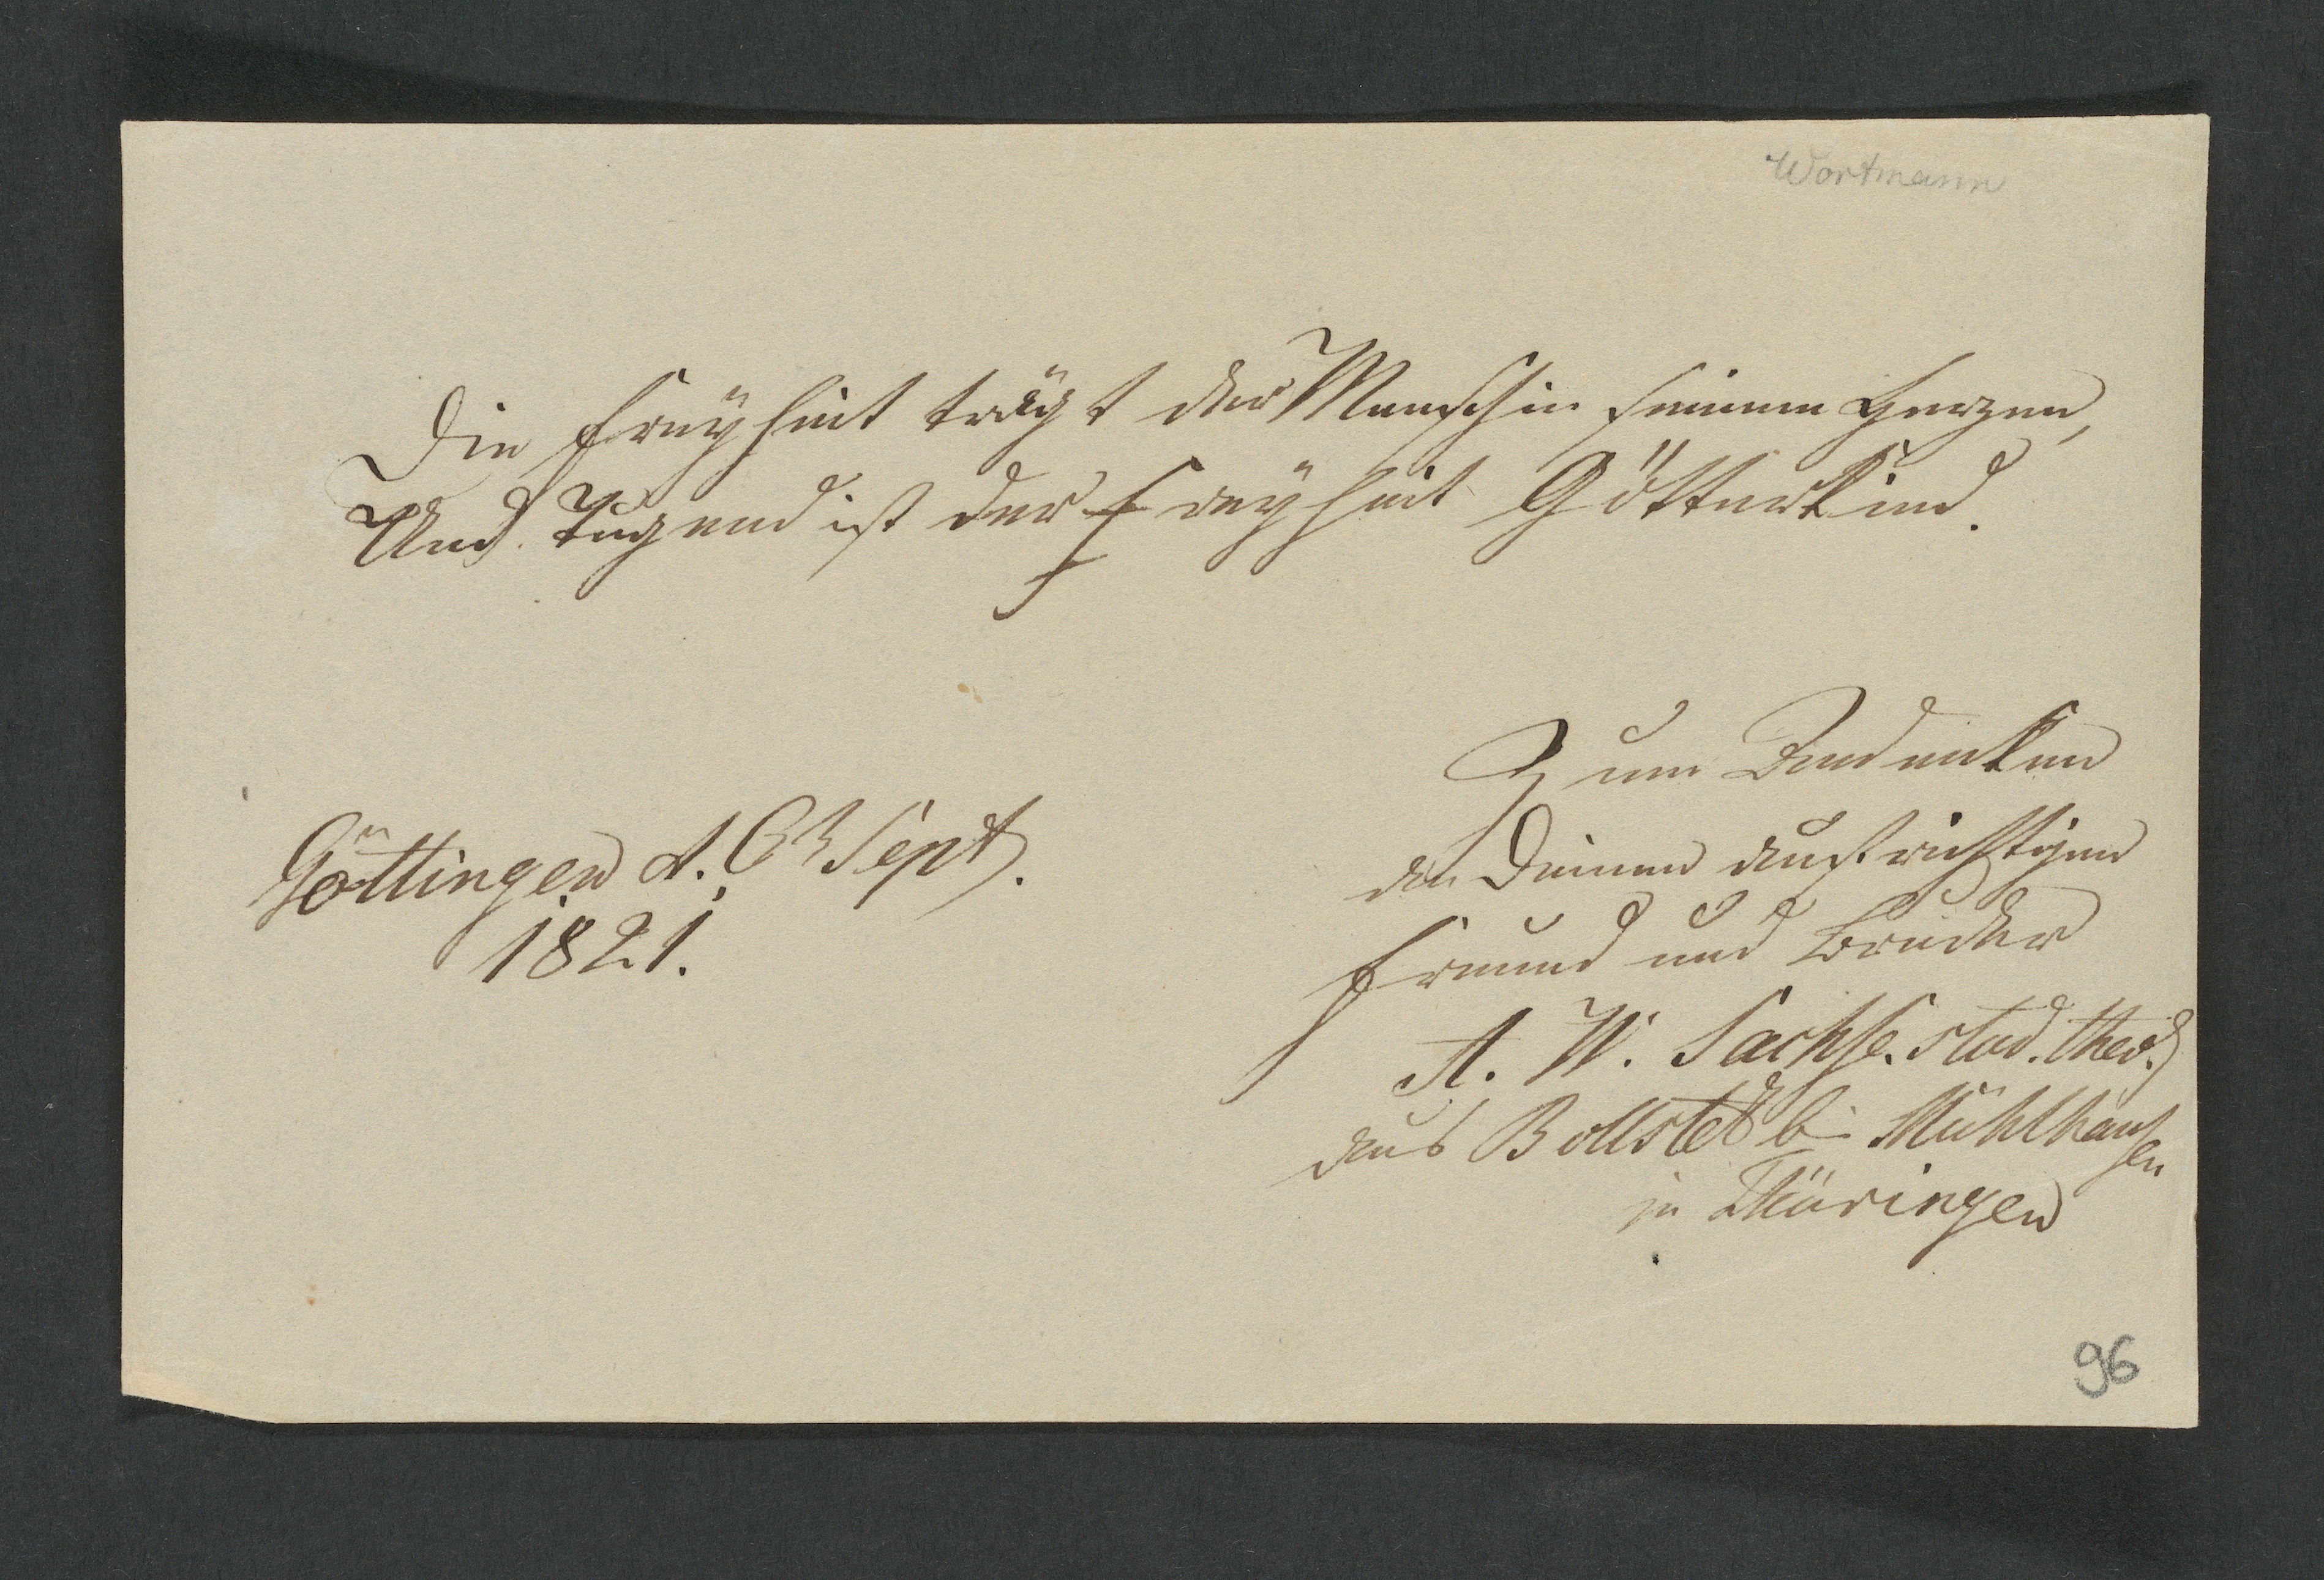 Wortmann
Die Freÿheit trägt der Mensch in seinem Herzen,
Und Tugend ist der Freÿheit Götterkind.
Zum Andenken
an Deinen aufrichtigen
Freund und Bruder
A. W. Sachse. stud. theol.
aus Bollstedt b Mühlhausen
in Thüringen
Göttingen d. Sept.
1821.
96